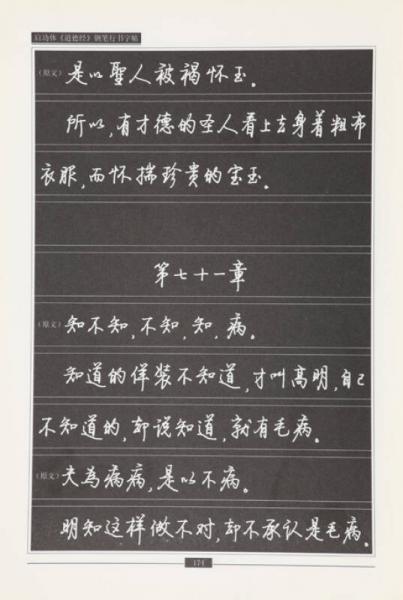 启功体《道德经》钢笔行书字帖
（原文）是以聖人被褐怀玉。
所以,有才德的圣人看上去身着粗布
衣服,而怀揣珍贵的宝玉。
第七十一章
（原文）知不知,不知,知,病。
知道的佯装不知道,才叫高明,自己
不知道的,却说知道,就有毛病。
（原文）夫為病病,是以不病。
明知这样做不对,却不承认是毛病。
174